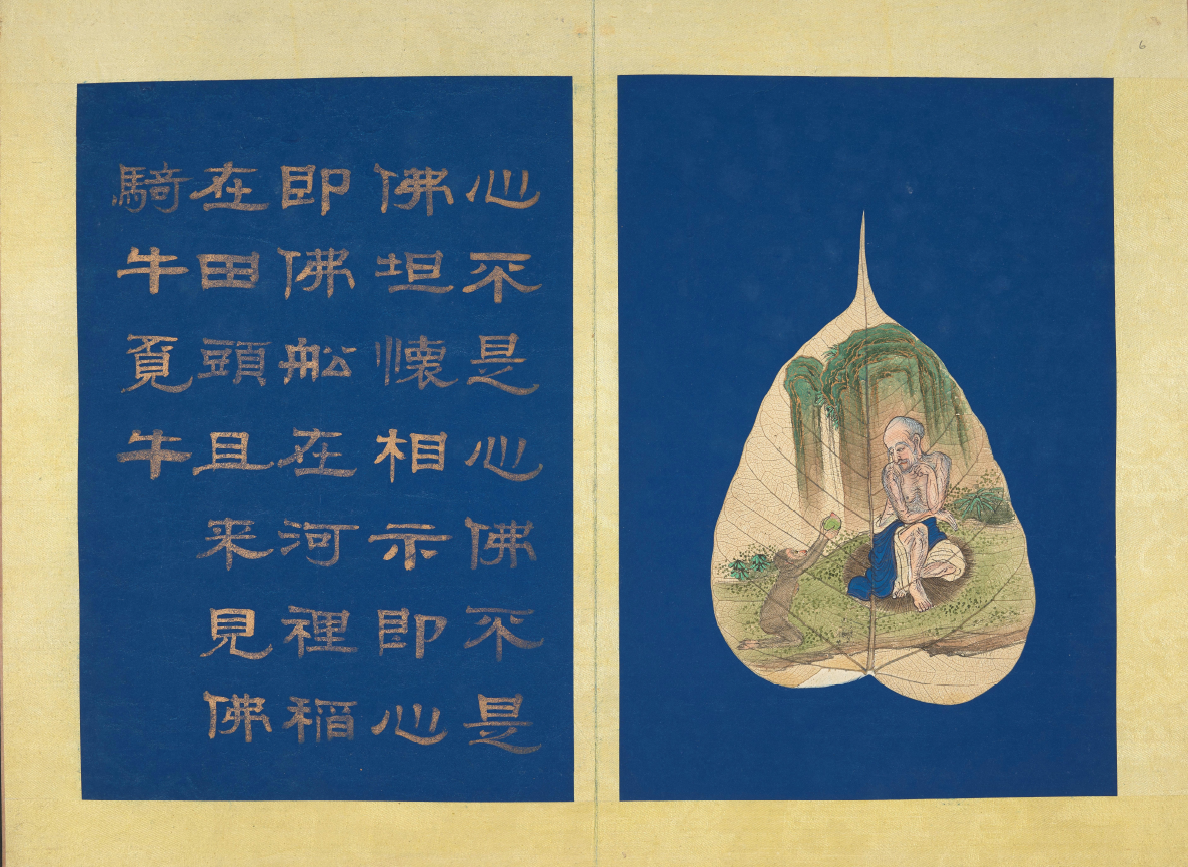 6
心不是心佛不是
佛坦懷相示即心
即佛舩在河裡稻
在田頭且来見佛
騎牛覓牛